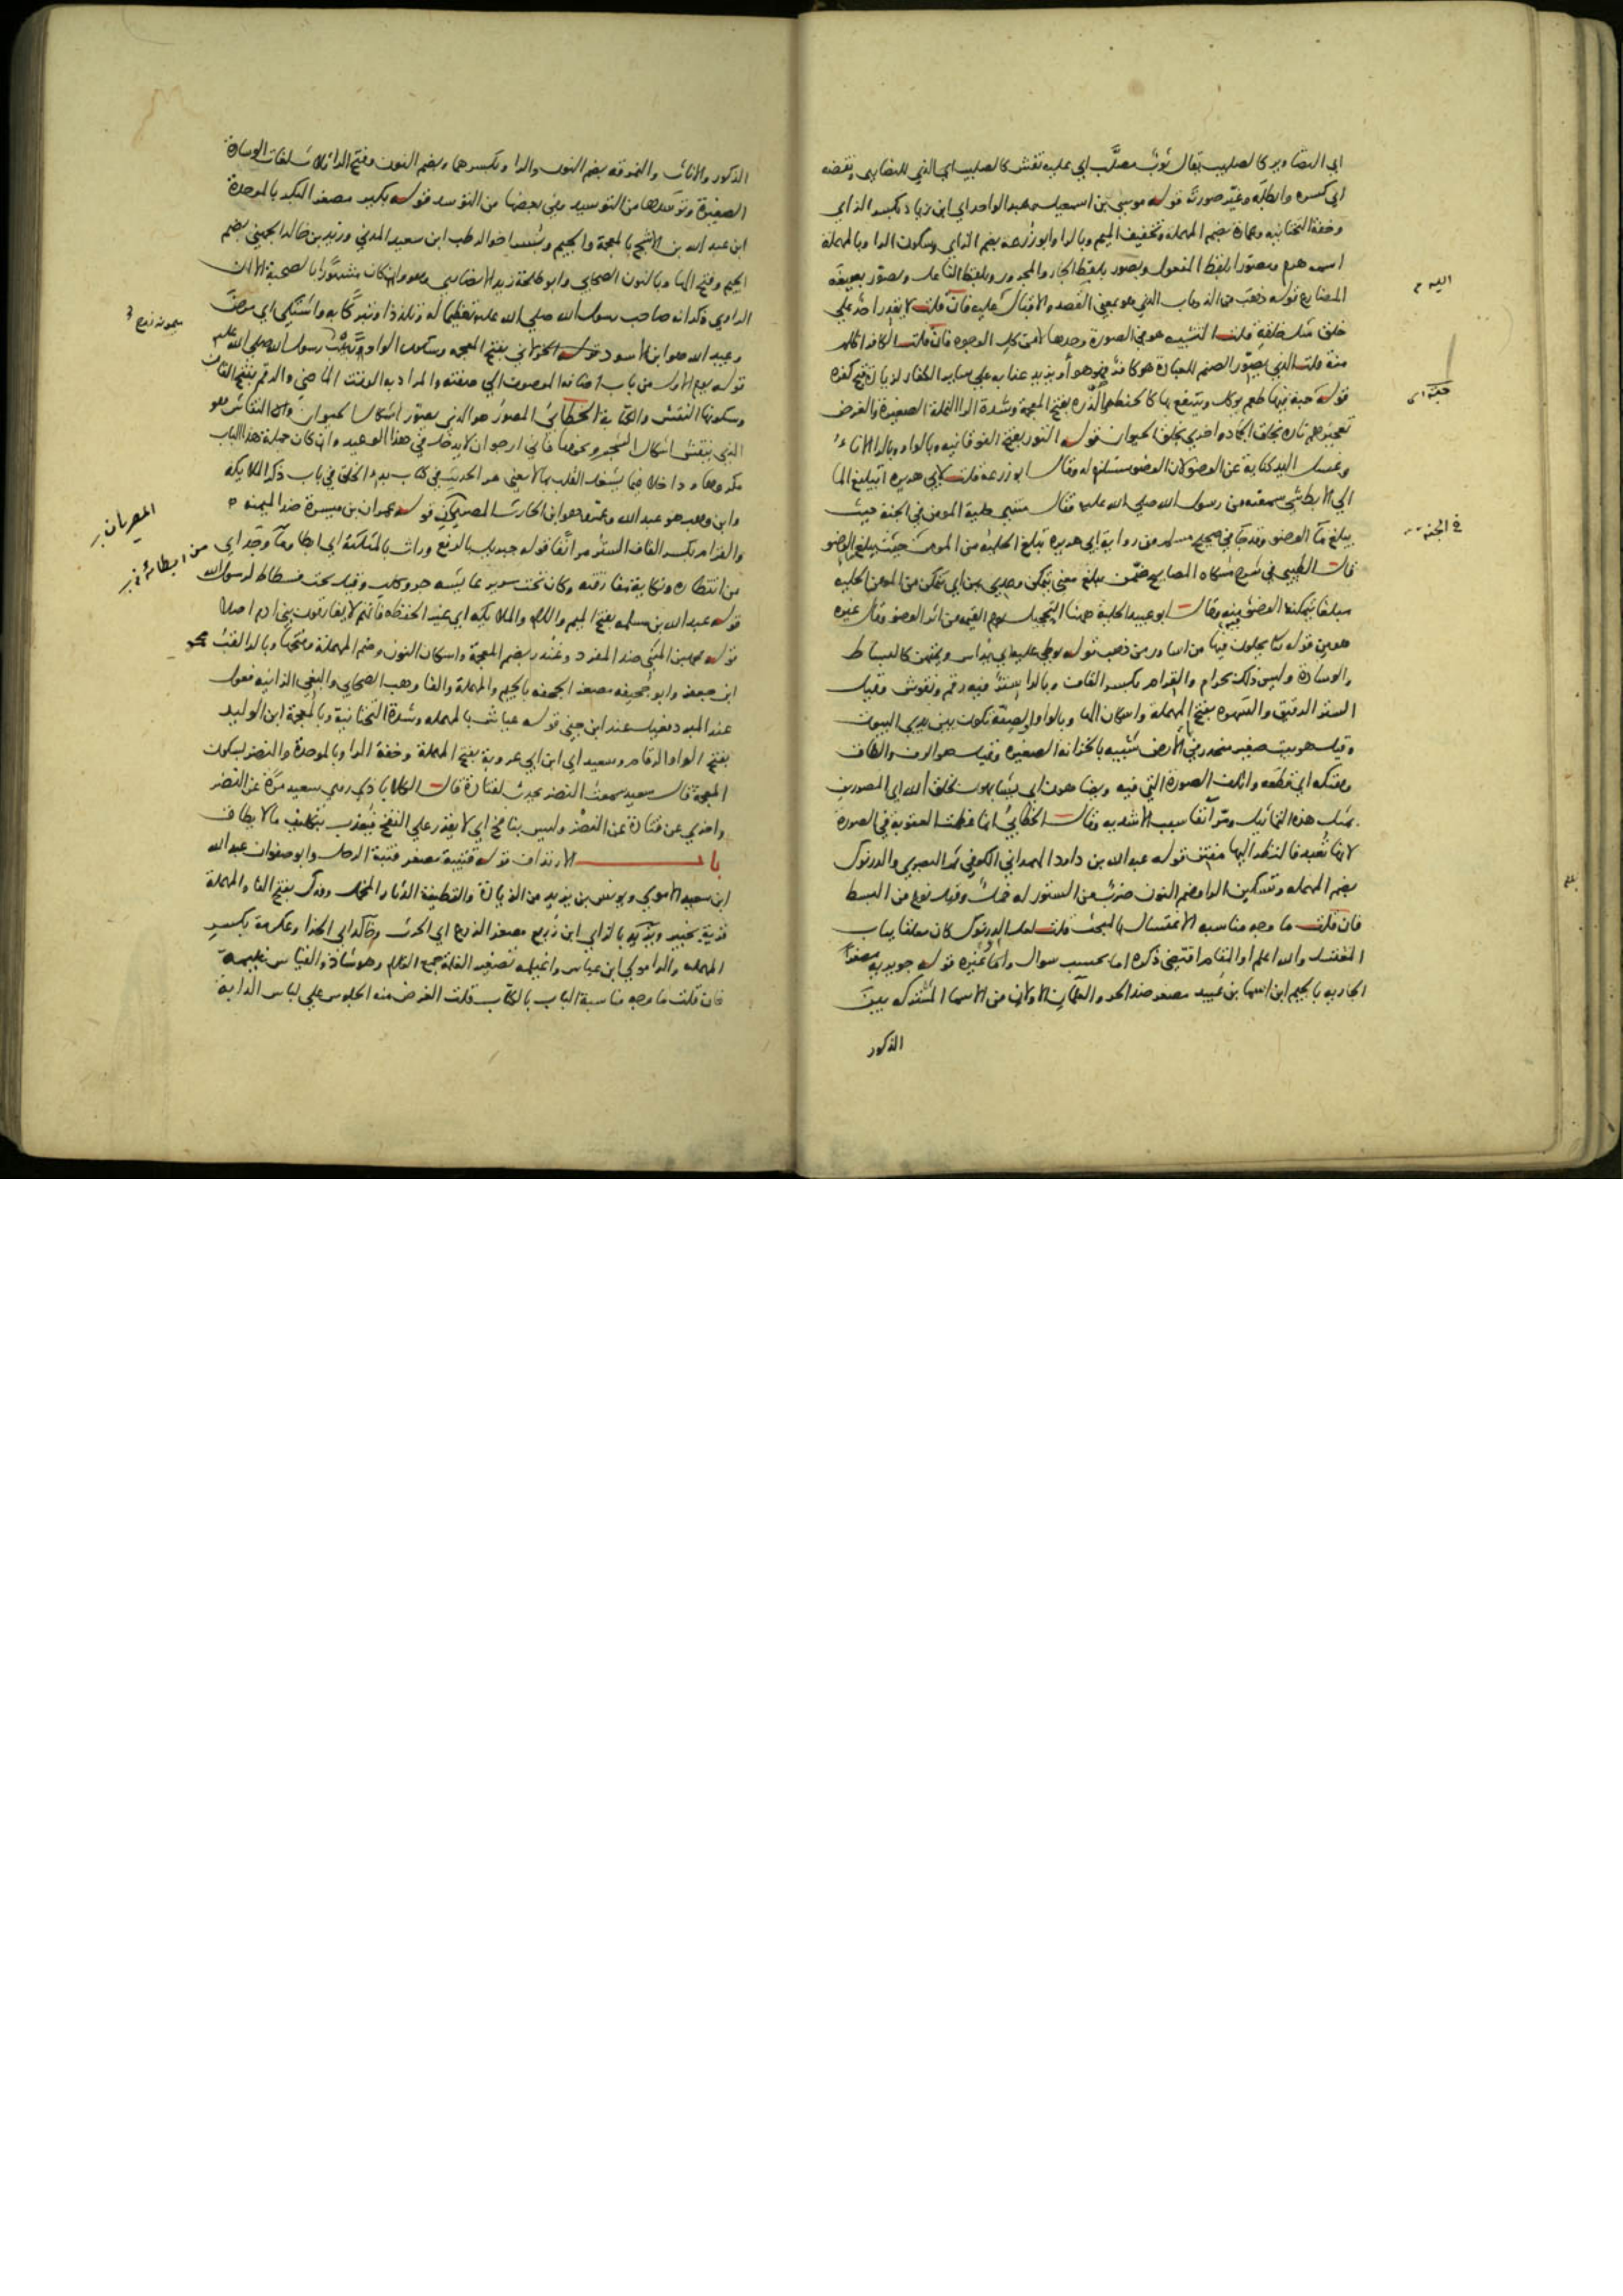 اي التصاوير كالصليب يقال ثوب مصلب اي عليه نقش كالصليب اي الذي للنصارى ونقضه
اي كسره وابطله وغير صورته قوله موسى بن اسمعيل عبد الواحد اي ابن زياد بكسر الزاي
وخفة التحتانيه وعمارة بضم المهملة وتخفيف الميم وبالرا وابو زرعة بضم الزاي وسكون الرا وبالمهملة
اسمه هرم ومصورا بلفظ المفعول وبصور بلفظ الجار والمجرور وبلفظ الفاعل ويصور بصيغة
المضارع قوله ذهب من الذهاب الذي هو بمعنى القصد والاقبال عليه فان قلت لا يقدر احد على
خلق مثل خلقه قلت التشبيه هو في الصورة وحدها لا من كل الوجوه فان قلت الكافر اظلم
منه قلت الذي يصور الصنم للعبادة هو كافر فهو هو أو يزيد عذابه على ساير الكفار لزيادة قبح كفره
قوله حبة فيها طعم يوكل وينتفع بها كالحنطة والذره بفتح المعجمة وشدة الرا النملة الصغيرة والغرض
تعجيزهم تارة بخلق الجماد واخرى بخلق الحيوان قوله التور بفتح الفوقانيه وبالواو وبالرا الاناء
وغسل اليد كناية عن الوضو لان الوضو مستلزم له وقال ابو زرعة قلت لابي هريره اتبليغ الما
الى الابط شي سمعته من رسول الله صلى الله عليه فقال منتهى حلية المومن في الجنة حيث
يبلغ ما الوضو وقد جا في صحيح مسلم من رواية ابي هريره تبلغ الحلية من المومن حيث يبلغ الوضو
قال الطيبي في شرح مشكاه المصابيح ضمن يبلغ معنى يتمكن وعدي بمن اي يتمكن من المومن الحليه
مبلغا يتمكنه الوضو منه وقال ابو عبيد الحلية ههنا التحجيل يوم القيمه من اثر الوضو وقال غيره
هو من قوله تعا يحلون فيها من اساور من ذهب قوله يوطى عليه اي يداس ويمتهن كالبساط
والوسادة وليس ذلك بحرام والقرام بكسر القاف وبالرا ستر فيه رقم ونقوش وقيل
الستر الرقيق والسهوه بفتح المهملة واسكان الها وبالواو الصفة تكون بين يدي البيوت
وقيل هو بيت صغير منحدر في الارض شبيه بالخزانه الصغيره وقيل هو الرف والطاق
وهتكه اي قطعه واتلف الصورة التي فيه ويضاهون اي يشابهون بخلق الله اي المصورين
بمثل هذه التماثيل ومر آنفا سبب الاشديه وقال الخطابي انما عظمت العقوبة في الصورة
لانها تعبد فالنظر اليها مفتتن قوله عبد الله بن داود الهمداني الكوفي ثم البصري والدرنوك
بضم المهمله وتسكين الرا وضم النون ضرب من الستور له خمل وقيل نوع من البسط
فان قلت ما وجه مناسبه الاغتسال بالمبحث قلت لعل الدرنوك كان معلقا بباب
المغتسل والله اعلم او المقام اقتضى ذكره اما بحسب سوال واما غيره قوله جويريه مصغر
الجاريه بالجيم ابن اسما بن عبيد مصغر ضد الحر والعلمان الاولان من الاسما المشتركه بين
الذكور
اليه
حبة اى
في الجنة
الذكور والاناث والنمرقه بضم النون والرا وبكسرهما وبضم النون وفتح الرا ثلث لغات الوسادة
الصغيرة وتوسدها من التوسيد وفي بعضها من التوسد قوله بكير مصغر البكر بالموحدة
ابن عبد الله بن الاشج بالمعجمة والجيم وبسر اخو الرطب ابن سعيد المدني وزيد بن خالد الجهني بضم
الجيم وفتح الها وبالنون الصحابي وابو طلحة زيد الانصاري وهو وان كان مشهورا بالصحبة الا ان
الراوي ذكر انه صاحب رسول الله صلى الله عليه تعظيما له وتلذذا وتبركا به واشتكى اي مرض
وعبيد الله هو ابن الاسود قوله الخولاني بفتح المعجمه وسكون الواو ربيب رسول الله صلى الله عليه
قوله يوم الاول من باب اضافة الموصوف الى صفته والمراد به الوقت الماضي والرقم بفتح القاف
وسكونها النقش والكتابة الخطابي المصور هو الذي يصور اشكال الحيوان واما النقاش وهو
الذي ينقش اشكال الشجر ونحوها فاني ارجو ان لا يدخل في هذا الوعيد وان كان جملة هذا الباب
مكروها وداخلا فيما يشغل القلب بما لا يعني مر الحديث في كتاب بدء الخلق في باب ذكر الملايكة
وابن وهب هو عبد الله وعمرو هو ابن الحارث المصريان قوله عمران بن ميسرة ضد الميمنه
والقرام بكسر القاف الستر مر آنفا قوله جبريل بالرفع وراث بالمثلثة اي ابطا وما وجد اي
من انتظاره ونكاية مفارقته وكان تحت سرير عايشه جرو كلب وقيل تحت فسطاط لرسول الله
قوله عبد الله بن مسلمه بفتح الميم واللام والملايكه اي غير الحفظه فانهم لا يفارقون بني ادم اصلا
قوله محمد بن المثنى ضد المفرد وغندر بضم المعجمة واسكان النون وضم المهملة وفتحها وبالرا لقب محمد
ابن جعفر وابو جحيفه مصغر الجحفه بالجيم والمهملة والفا وهب الصحابي والبغي الزانيه فعول
عند المبرد فعيل عند ابن جني قوله عياش بالمهمله وشدة التحتانية وبالمعجمة ابن الوليد
بفتح الواو الرقام وسعيد اي ابن ابي عروبة بفتح المهملة وخفة الرا وبالموحدة والنضر بسكون
المعجمة قال سعيد سمعت النضر يحدث لقتادة قال الكلاباذي روى سعيد مرة عن النضر
واخرى عن قتادة عن النضر وليس بنافخ اي لا يقدر على النفخ فيعذب بتكليف ما لا يطاق
باب الارتداف قوله قتيبة مصغر قتبة الرحل وابو صفوان عبد الله
ابن سعيد الاموي ويونس بن يزيد من الزيادة والقطيفة الدثار المخمل وفدك بفتح الفا والمهملة
قرية بخيبر ويزيد بالزاي ابن زريع مصغر الزرع اي الحرث وخالد اي الحذا وعكرمة بكسر
المهمله والرا مولى ابن عباس واغيلمه تصغير الغلمة جمع الغلام وهو شاذ والقياس غليمة
فان قلت ما وجه مناسبة الباب بالكتاب قلت الغرض منه الجلوس على لباس الدابة
ميمونه زوج
المصريان
من ابطائه